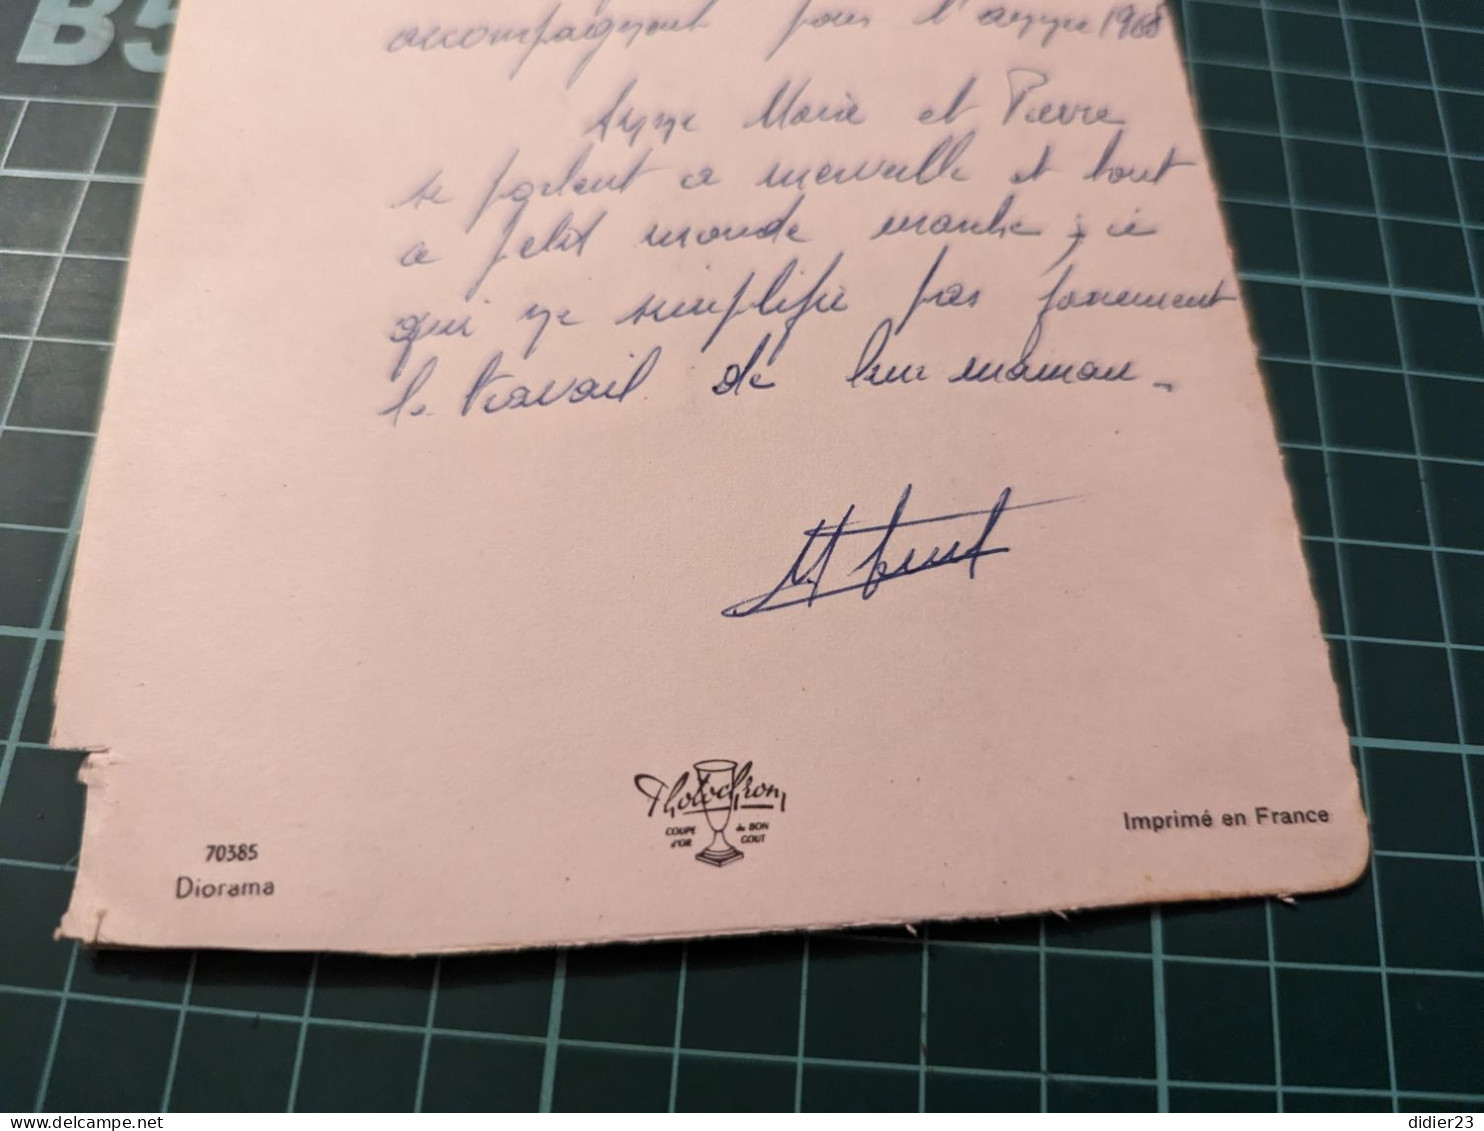 B5
accompagnent pour l'année 1968
Anne Marie et Pierre
se portent a merveille et tout
ce petit monde marche ; ce
qui ne simplifie pas forcement
le travail de leur maman.
Photochrom
COUPE D'OR du BON GOUT
70385
Diorama
Imprimé en France
www.delcampe.net
didier23